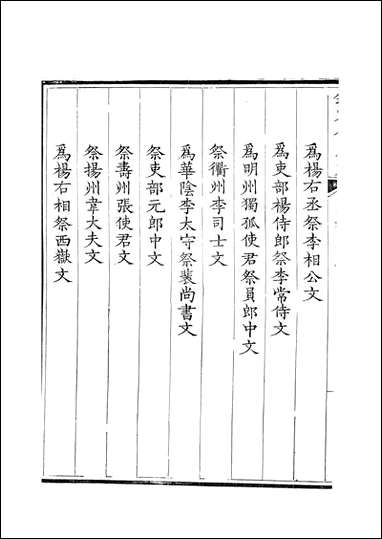 為楊右丞祭李相公文
為吏部楊侍郎祭李常侍文
為明州獨孤使君祭員郎中文
祭衢州李司士文
為華陰李太守祭裴尚書文
祭吏部元郎中文
祭壽州張使君文
祭揚州韋大夫文
為楊右相祭西嶽文